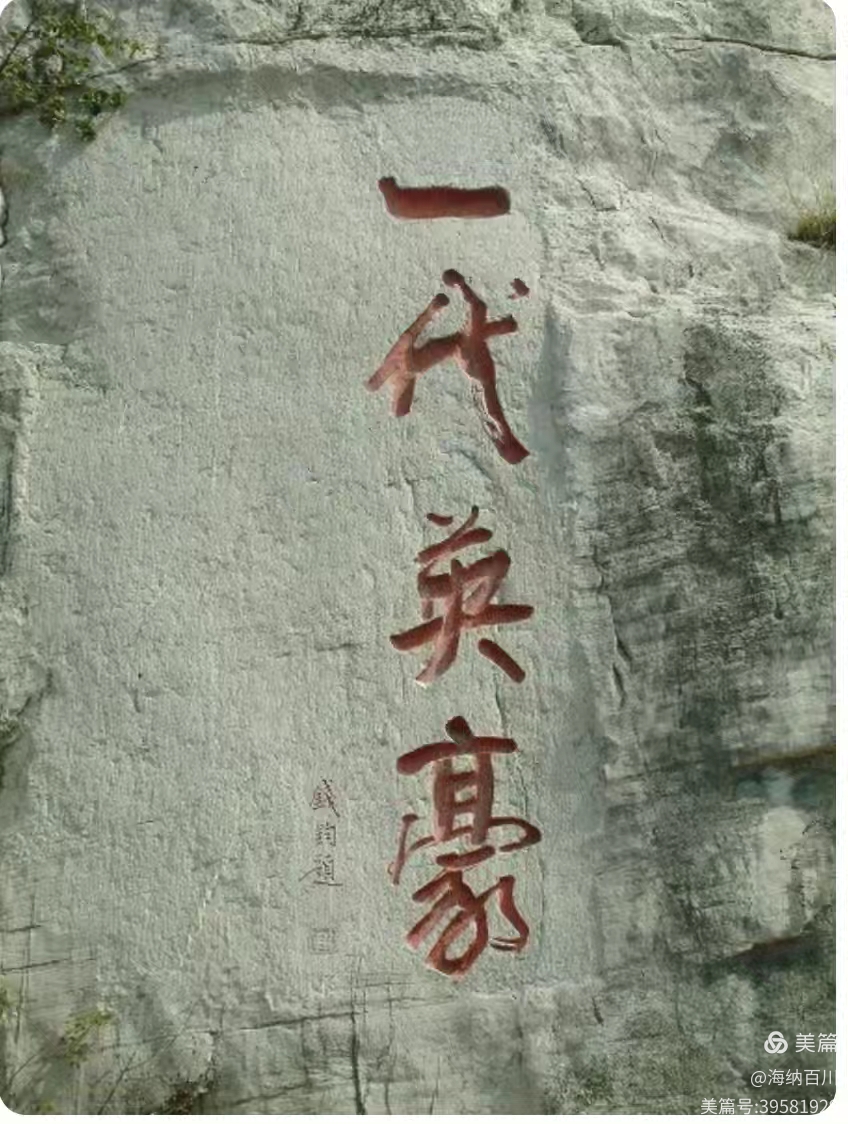 一代英豪
钱钧题
美篇
@海纳百川
美篇号:3958192